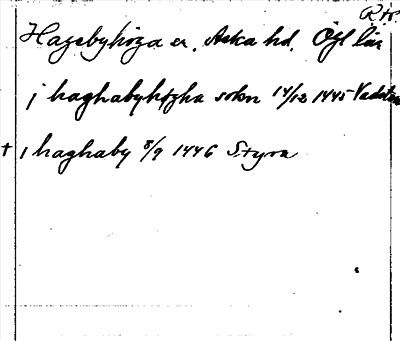 Hagebyhöga sn. Aska hd. Ögl län
j haghabyhøgha sokn 14/12 1445 Vadstena
+ i haghaby 8/9 1446 Styra